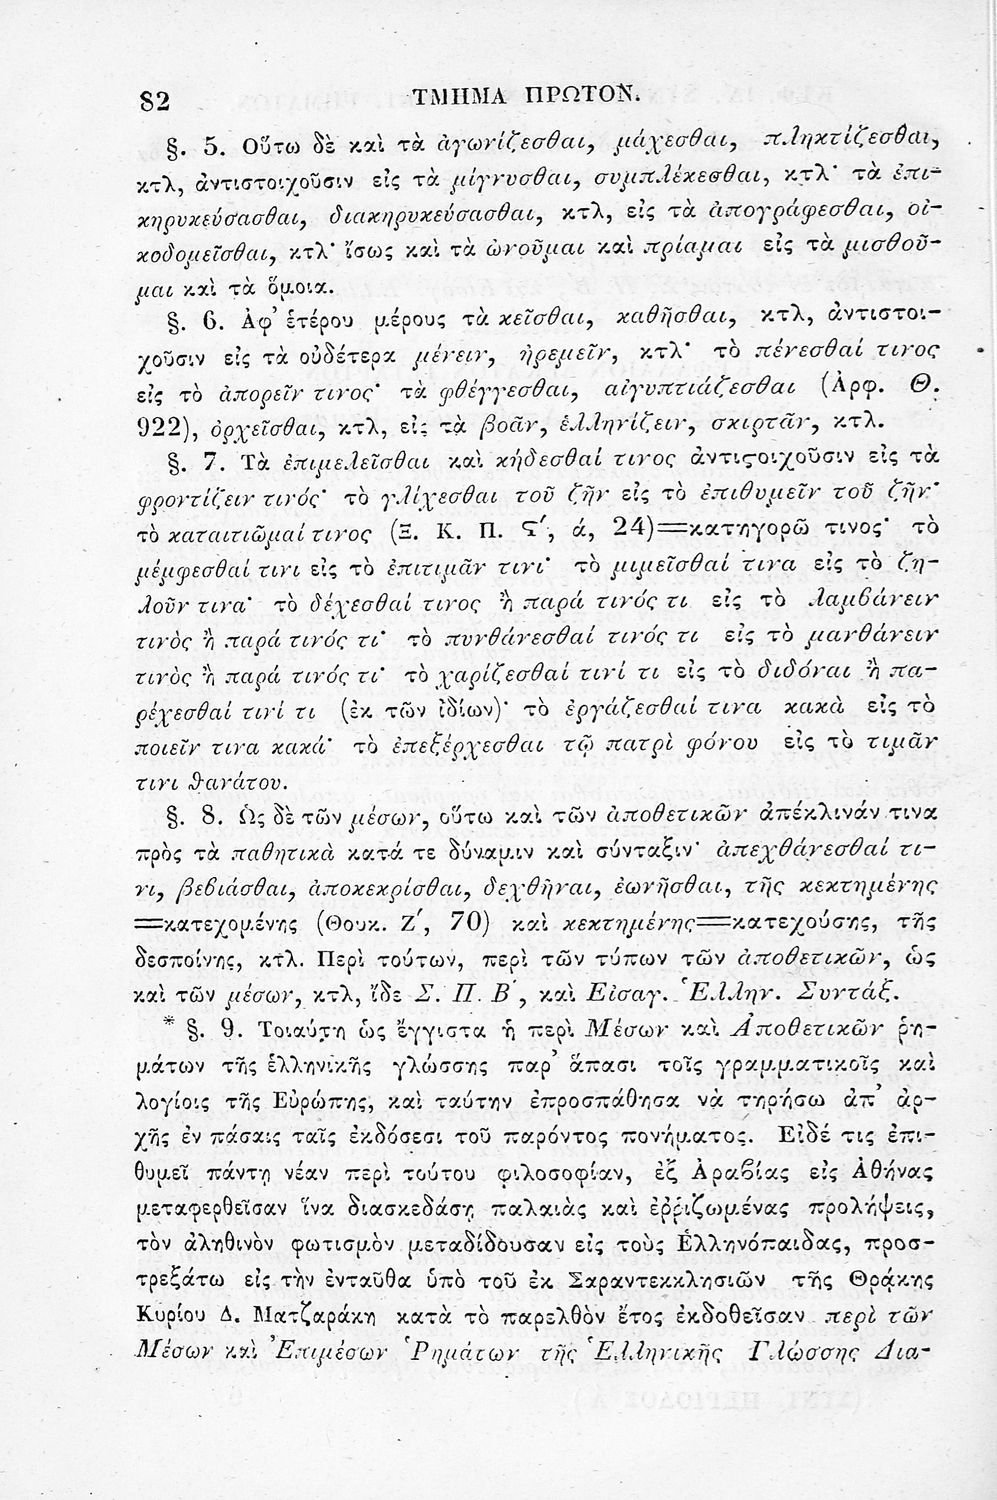 82 ΤΜΗΜΑ ΠΡΩΤΟΝ.
§. 5. Οὕτω δὲ καὶ τὰ ἀγωνίζεσθαι, μάχεσθαι, πληκτίζεσθαι,
κτλ, ἀντιστοιχοῦσιν εἰς τὰ μίγνυσθαι, συμπλέκεσθαι, κτλ· τὰ ἐπι-
κηρυκεύσασθαι, διακηρυκεύσασθαι, κτλ, εἰς τὰ ἀπογράφεσθαι, οἰ-
κοδομεῖσθαι, κτλ· ἴσως καὶ τὰ ὠνοῦμαι καὶ πρίαμαι εἰς τὰ μισθοῦ-
μαι καὶ τὰ ὅμοια.
§. 6. Ἀφ' ἑτέρου μέρους τὰ κεῖσθαι, καθῆσθαι, κτλ, ἀντιστοι-
χοῦσιν εἰς τὰ οὐδέτερα μένειν, ἠρεμεῖν, κτλ· τὸ πένεσθαί τινος
εἰς τὸ ἀπορεῖν τινος· τὰ φθέγγεσθαι, αἰγυπτιάζεσθαι (Ἀρφ. Θ.
922), ὀρχεῖσθαι, κτλ, εἰς τὰ βοᾶν, ἑλληνίζειν, σκιρτᾶν, κτλ.
§. 7. Τὰ ἐπιμελεῖσθαι καὶ κήδεσθαί τινος ἀντιϛοιχοῦσιν εἰς τὰ
φροντίζειν τινός· τὸ γλίχεσθαι τοῦ ζῆν εἰς τὸ ἐπιθυμεῖν τοῦ ζῆν·
τὸ καταιτιῶμαί τινος (Ξ. Κ. Π. Ϛ′, ά, 24)=κατηγορῶ τινος· τὸ
μέμφεσθαί τινι εἰς τὸ ἐπιτιμᾶν τινι· τὸ μιμεῖσθαί τινα εἰς τὸ ζη-
λοῦν τινα· τὸ δέχεσθαί τινος ἢ παρά τινός τι εἰς τὸ λαμβάνειν
τινὸς ἢ παρά τινός τι· τὸ πυνθάνεσθαί τινός τι εἰς τὸ μανθάνειν
τινὸς ἢ παρά τινός τι· τὸ χαρίζεσθαί τινί τι εἰς τὸ διδόναι ἢ πα-
ρέχεσθαί τινί τι (ἐκ τῶν ἰδίων)· τὸ ἐργάζεσθαί τινα κακὰ εἰς τὸ
ποιεῖν τινα κακά· τὸ ἐπεξέρχεσθαι τῷ πατρὶ φόνου εἰς τὸ τιμᾶν
τινι θανάτου.
§. 8. Ὡς δὲ τῶν μέσων, οὕτω καὶ τῶν ἀποθετικῶν ἀπέκλινάν τινα
πρὸς τὰ παθητικὰ κατά τε δύναμιν καὶ σύνταξιν· ἀπεχθάνεσθαί τι-
νι, βεβιάσθαι, ἀποκεκρίσθαι, δεχθῆναι, ἐωνῆσθαι, τῆς κεκτημένης
=κατεχομένης (Θουκ. Ζ′, 70) καὶ κεκτημένης=κατεχούσης, τῆς
δεσποίνης, κτλ. Περὶ τούτων, περὶ τῶν τύπων τῶν ἀποθετικῶν, ὡς
καὶ τῶν μέσων, κτλ, ἴδε Σ. Π. Β′, καὶ Εἰσαγ. Ἑλλην. Συντάξ.
* §. 9. Τοιαύτη ὡς ἔγγιστα ἡ περὶ Μέσων καὶ Ἀποθετικῶν ῥη-
μάτων τῆς ἑλληνικῆς γλώσσης παρ' ἅπασι τοῖς γραμματικοῖς καὶ
λογίοις τῆς Εὐρώπης, καὶ ταύτην ἐπροσπάθησα νὰ τηρήσω ἀπ' ἀρ-
χῆς ἐν πάσαις ταῖς ἐκδόσεσι τοῦ παρόντος πονήματος. Εἰδέ τις ἐπι-
θυμεῖ πάντη νέαν περὶ τούτου φιλοσοφίαν, ἐξ Ἀραβίας εἰς Ἀθήνας
μεταφερθεῖσαν ἵνα διασκεδάσῃ παλαιὰς καὶ ἐῤῥιζωμένας προλήψεις,
τὸν ἀληθινὸν φωτισμὸν μεταδίδουσαν εἰς τοὺς Ἑλληνόπαιδας, προσ-
τρεξάτω εἰς τὴν ἐνταῦθα ὑπὸ τοῦ ἐκ Σαραντεκκλησιῶν τῆς Θρᾴκης
Κυρίου Δ. Ματζαράκη κατὰ τὸ παρελθὸν ἔτος ἐκδοθεῖσαν περὶ τῶν
Μέσων καὶ Ἐπιμέσων Ῥημάτων τῆς Ἑλληνικῆς Γλώσσης Δια-